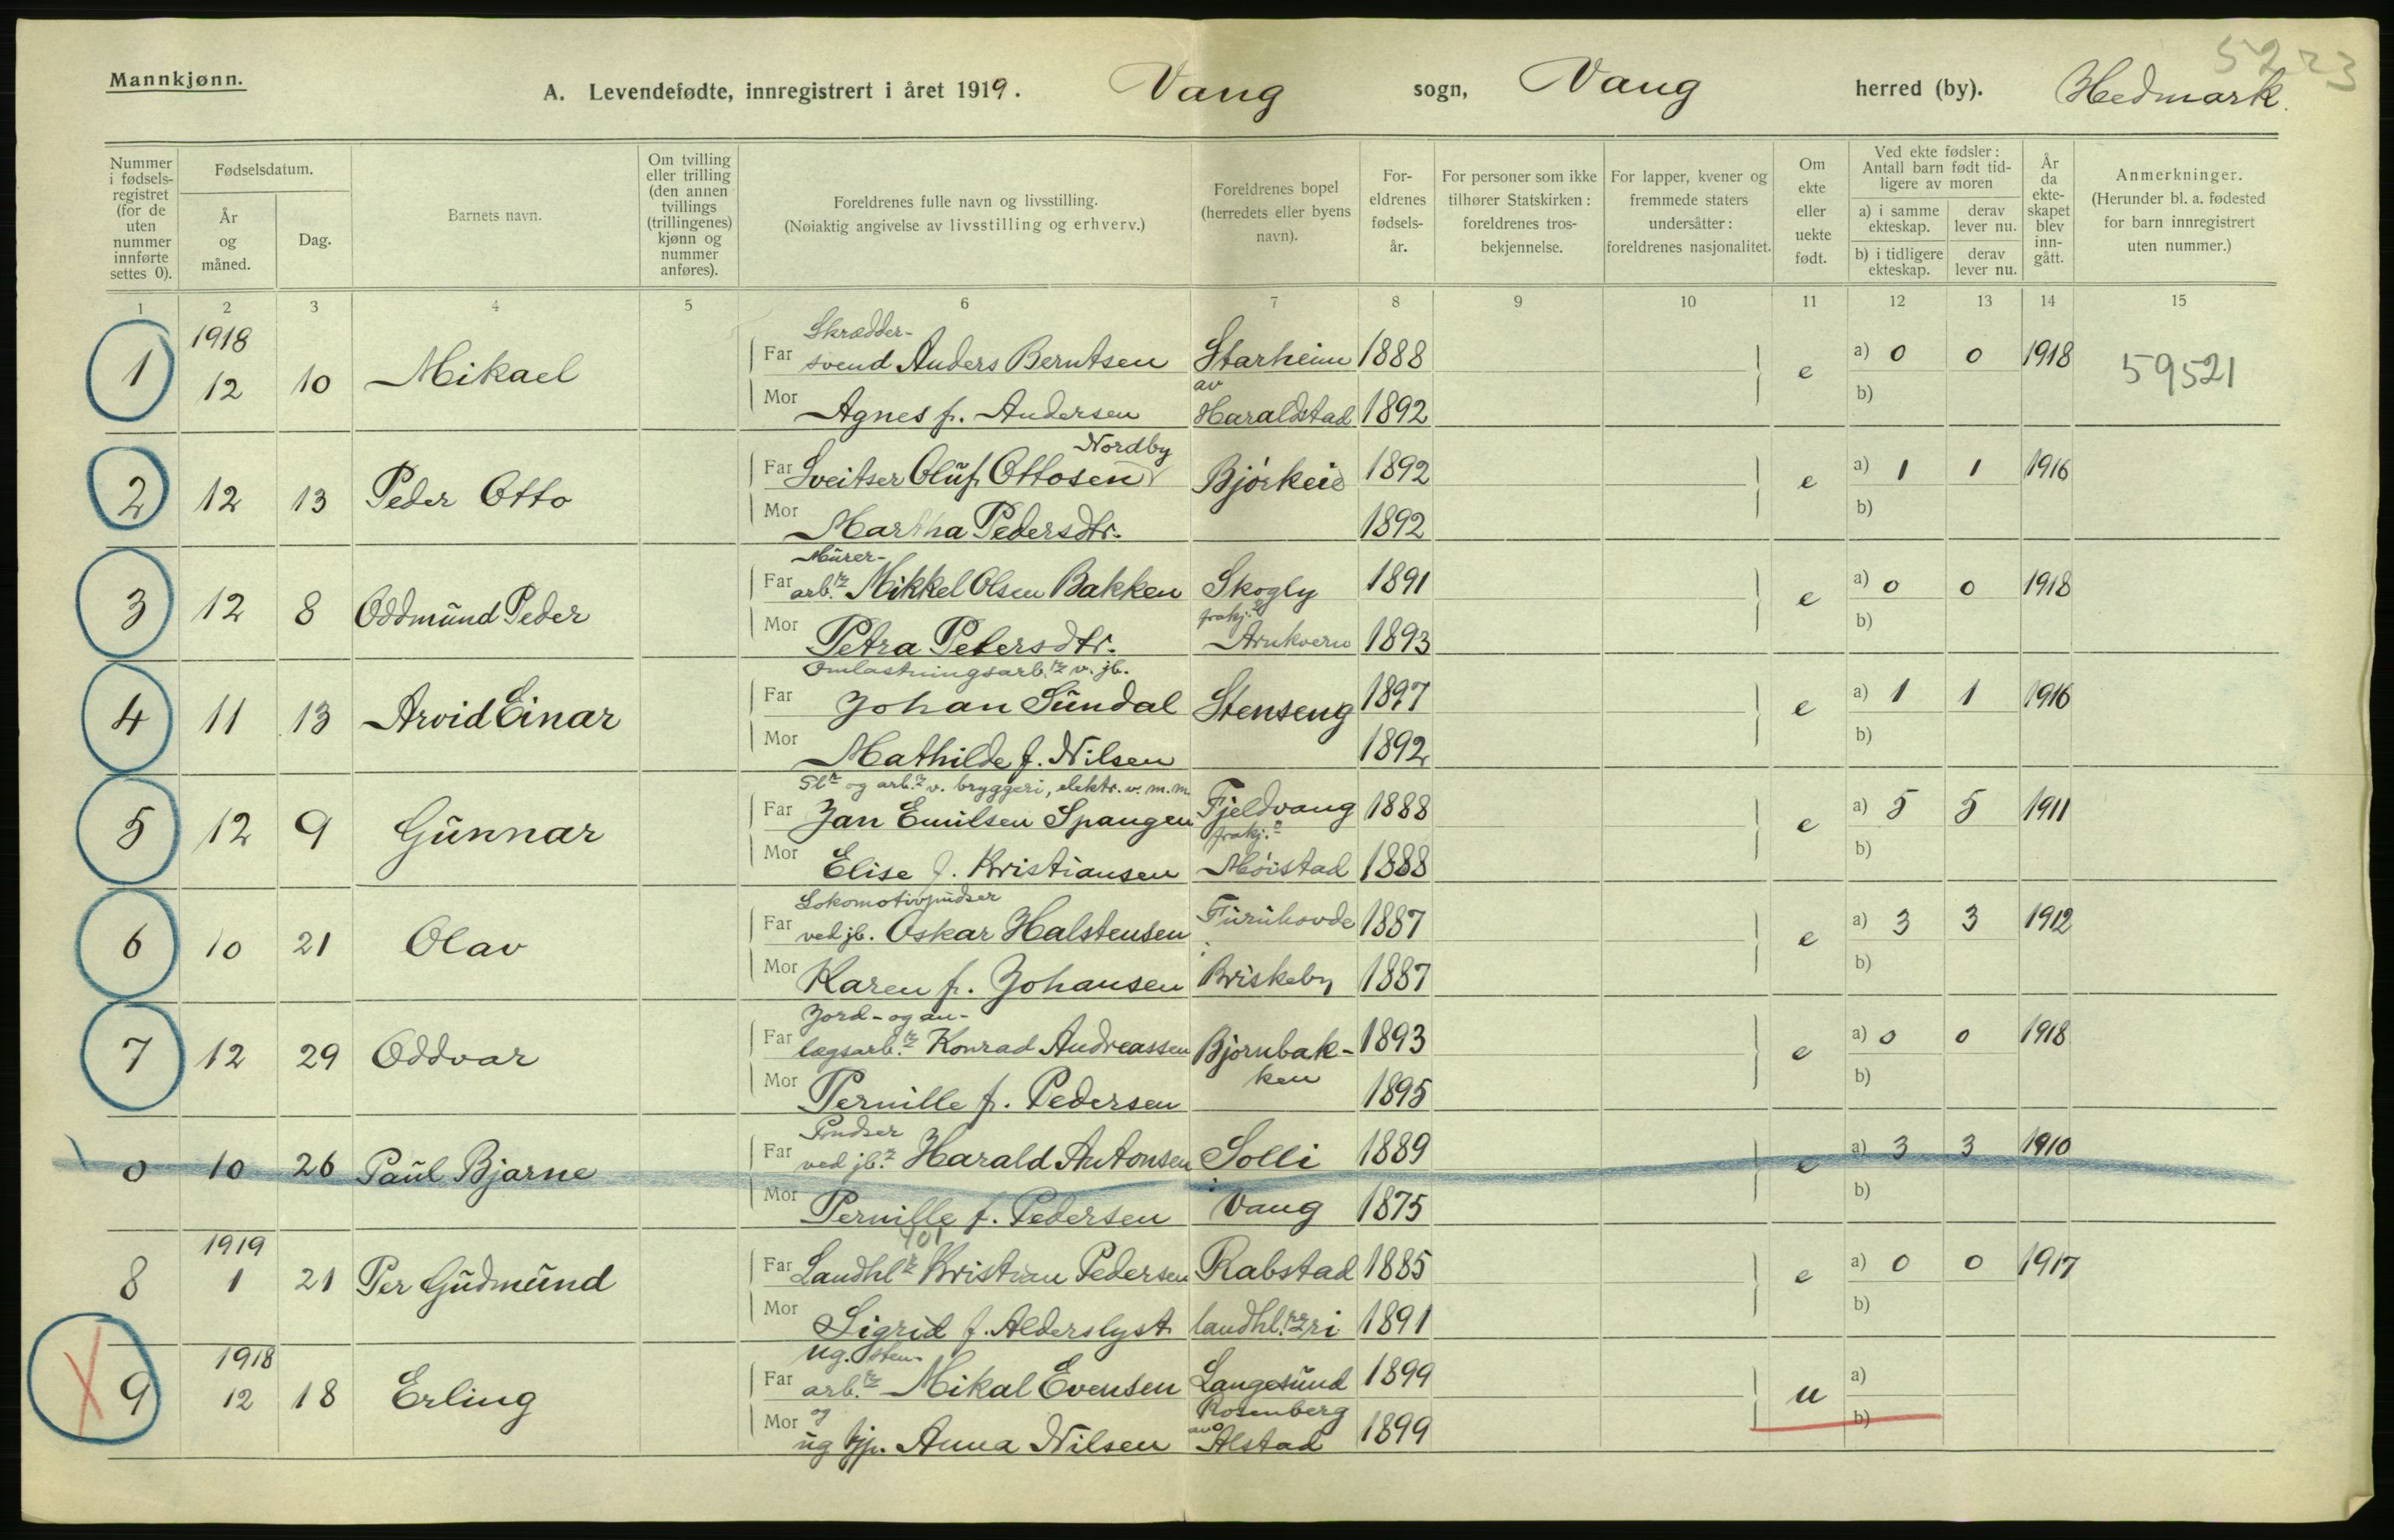 5223
Mannkjønn.
A. Levendefødte, innregistrert i året 1919. Vang sogn, Vang herred (by). Hedmark.
Nummer i fødsels-registret (for de uten nummer innførte settes 0).
Fødselsdatum.
År og måned.
Dag.
Barnets navn.
Om tvilling eller trilling (den annen tvillings (trillingenes) kjønn og nummer anføres).
Foreldrenes fulle navn og livsstilling.
(Nøiaktig angivelse av livsstilling og erhverv.)
Foreldrenes bopel (herredets eller byens navn).
For-eldrenes fødsels-år.
For personer som ikke tilhører Statskirken: foreldrenes tros-bekjennelse.
For lapper, kvener og fremmede staters undersåtter: foreldrenes nasjonalitet.
Om ekte eller uekte født.
Ved ekte fødsler: Antall barn født tid-ligere av moren
a) i samme ekteskap.
derav lever nu.
b) i tidligere ekteskap.
derav lever nu.
År da ekte-skapet blev inn-gått.
Anmerkninger.
(Herunder bl. a. fødested for barn innregistrert uten nummer.)
1 2 3 4 5 6 7 8 9 10 11 12 13 14 15
1918
Skrædder-
1 12 10 Mikael Far svend Anders Berntsen Starheim 1888 e a) 0 0 1918 59521
av
Mor Agnes f. Andersen Haraldstad 1892 b)
Nordby
2 12 13 Peder Otto Far Sveitser Oluf Ottosen Bjørkeie 1892 e a) 1 1 1916
Mor Martha Pedersdtr. 1892 b)
Murer-
3 12 8 Oddmund Peder Far arb.r Mikkel Olsen Bakken Skogly 1891 e a) 0 0 1918
Mor Petra Petersdtr. Arnkvern 1893 b)
Omlastningsarb.r v. jb.
4 11 13 Arvid Einar Far Johan Sundal Stenseng 1897 e a) 1 1 1916
Mor Mathilde f. Nilsen 1892 b)
og arb.r v. bryggeri, elektr. v. m.m.
5 12 9 Gunnar Far Jan Emilsen Spangen Fjeldvang 1888 e a) 5 5 1911
Mor Elise f. Kristiansen Møistad 1888 b)
Lokomotivpudser
6 10 21 Olav Far ved jb. Oskar Halstensen Furuhovde 1887 e a) 3 3 1912
Mor Karen f. Johansen Briskeby 1887 b)
Jord- og an-
7 12 29 Oddvar Far lægsarb.r Konrad Andreassen Bjørnbak- 1893 e a) 0 0 1918
ken
Mor Pernille f. Pedersen 1895 b)
Pudser
0 10 26 Paul Bjarne Far ved jb. Harald Antonsen Solli 1889 e a) 3 3 1910
Mor Pernille f. Pedersen Vang 1875 b)
1919
8 1 21 Per Gudmund Far Landhl.r Kristian Pedersen Rabstad 1885 e a) 0 0 1917
Mor Sigrid f. Alderslyst landhl.ri 1891 b)
1918
ug. sten-
9 12 18 Erling Far arb.r Mikal Evensen Langesund 1899 u a)
og Rosenberg
Mor ug tjp. Anna Nilsen av Alstad 1899 b)